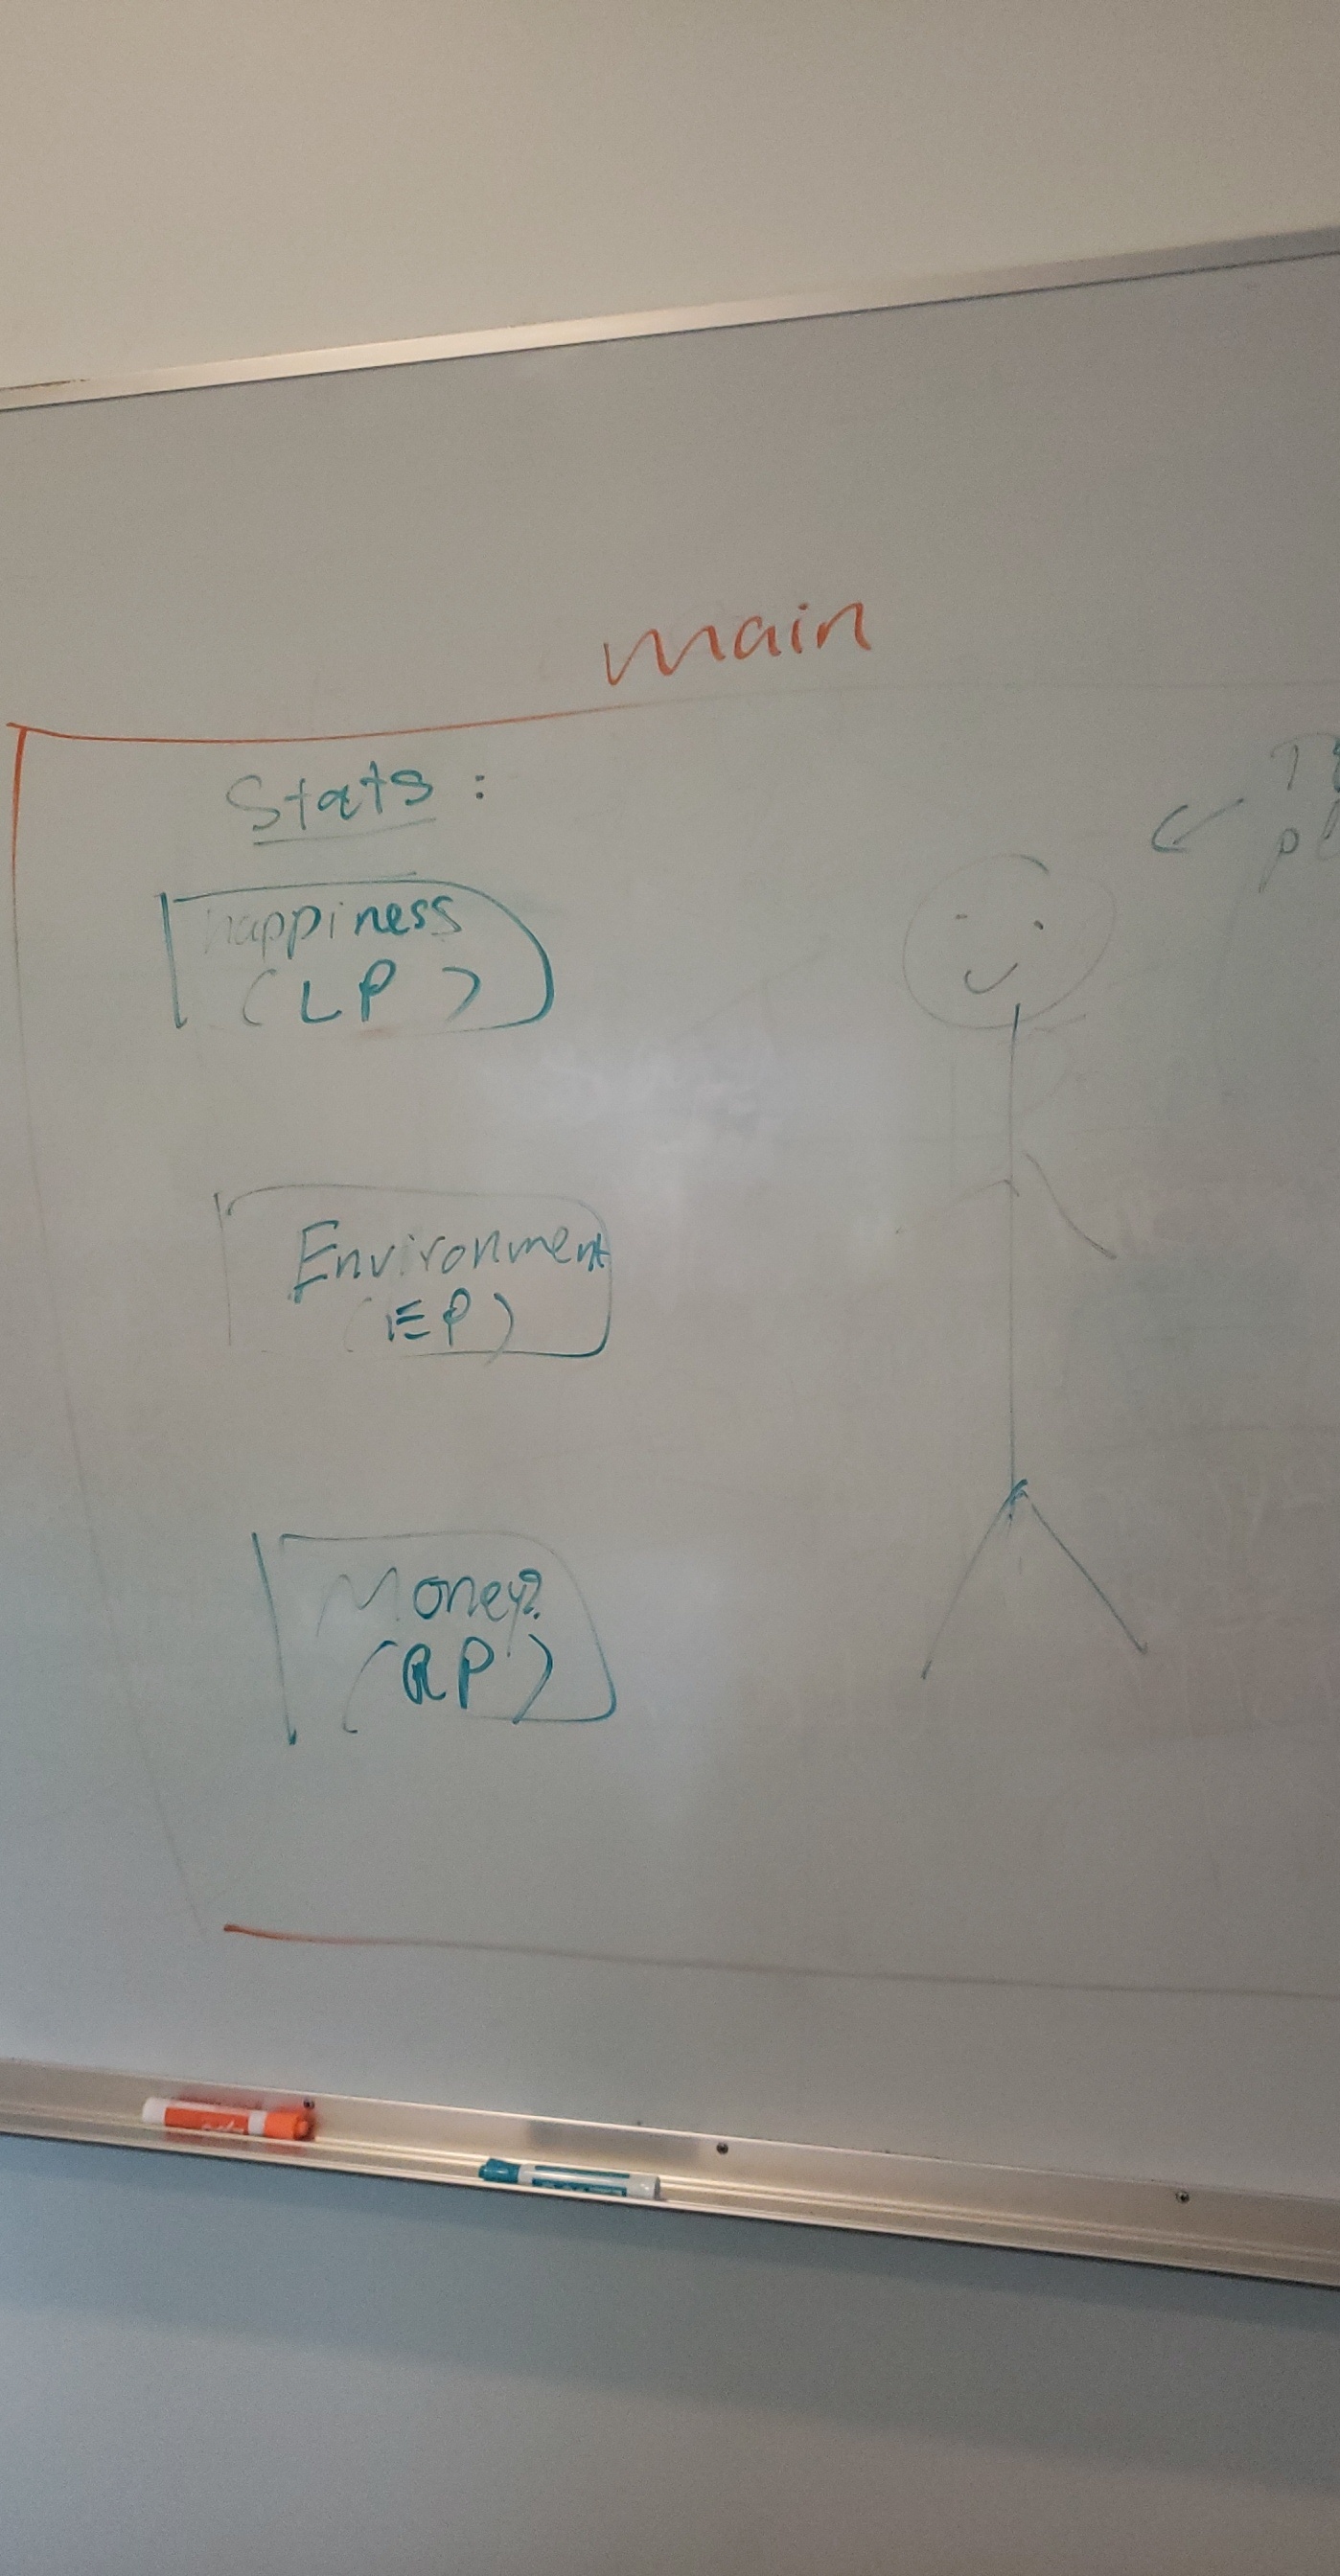 main
Stats:
happiness
(LP)
Environment
(EP)
Money?
(RP)